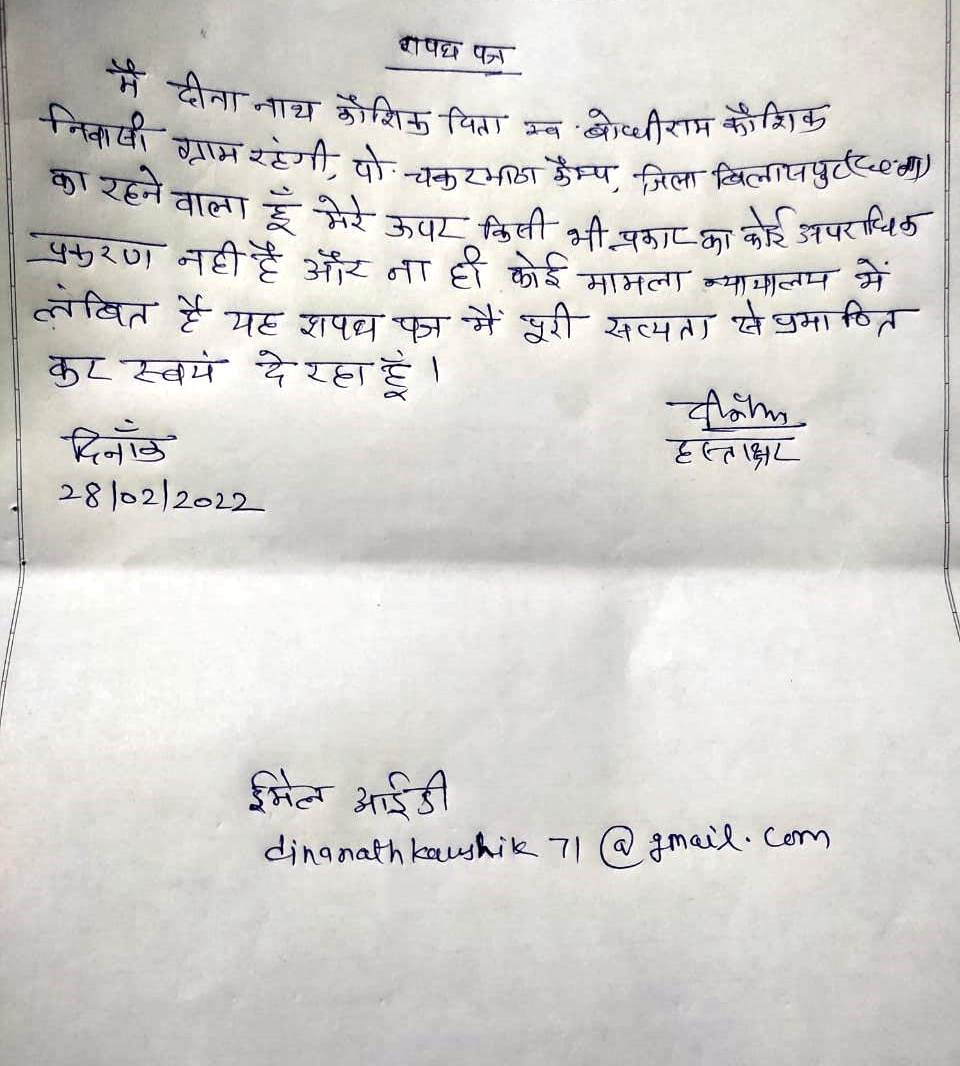 शपथ पत्र
मैं दीना नाथ कौशिक पिता स्व. बोधीराम कौशिक
निवासी ग्राम रहंगी, पो. चकरभाठा कैम्प, जिला बिलासपुर (छ.ग.)
का रहने वाला हूँ मेरे ऊपर किसी भी प्रकार का कोई अपराधिक
प्रकरण नही है और ना ही कोई मामला न्यायालय में
लंबित है यह शपथ पत्र मैं पूरी सत्यता से प्रमाणित
कर स्वयं दे रहा हूं।
हस्ताक्षर
दिनाँक
28/02/2022
ईमेल आईडी
dinanathkaushik71@gmail.com